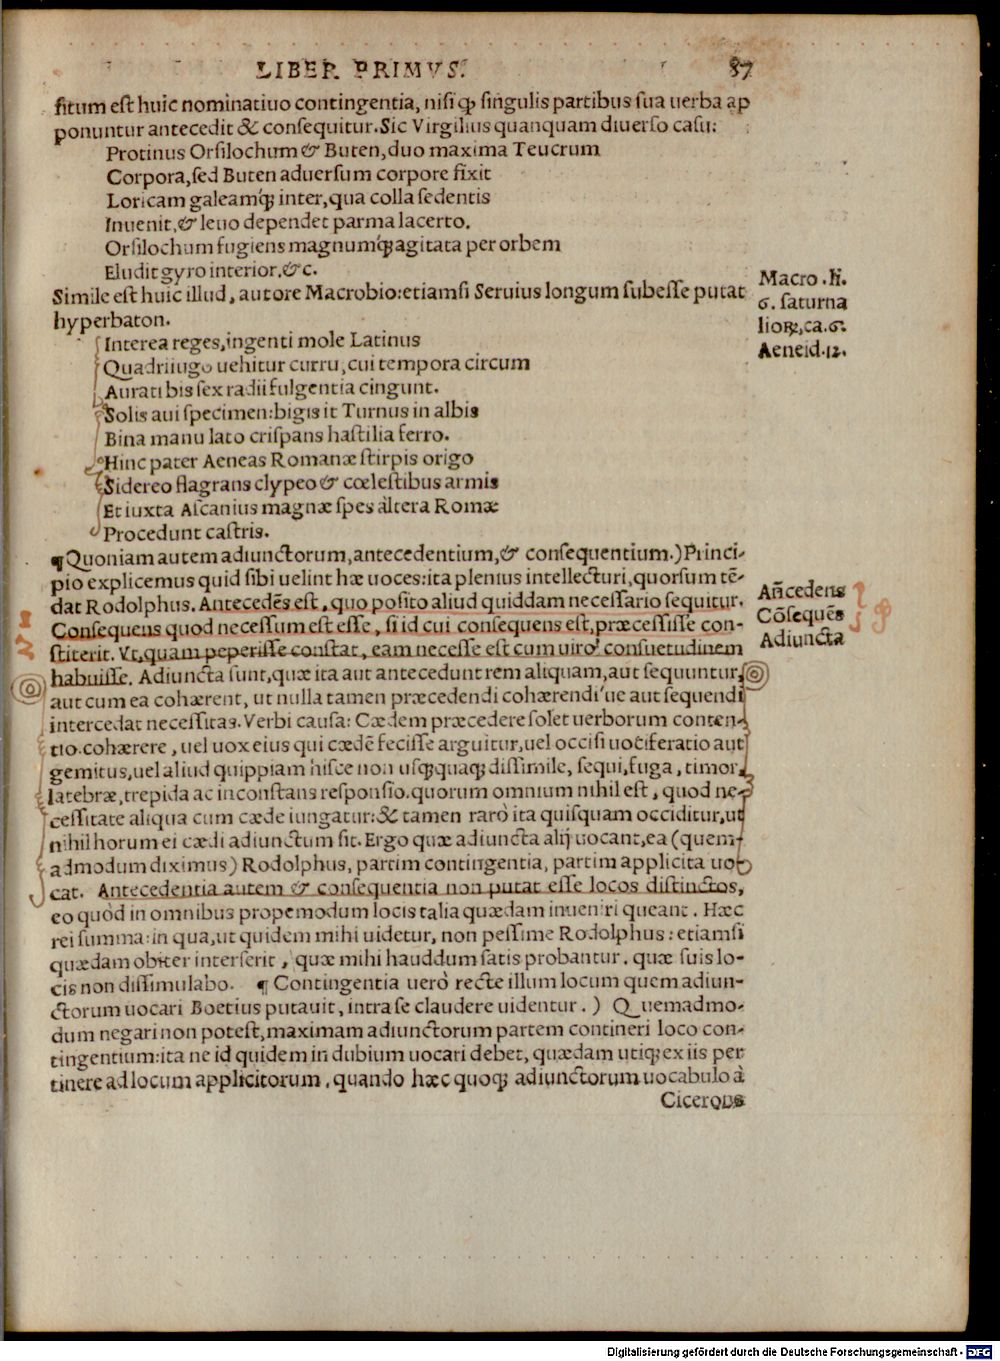 LIBER PRIMVS. 87
ſitum eſt huic nominatiuo contingentia, niſi ꝙ ſingulis partibus ſua uerba ap
ponuntur antecedit & conſequitur. Sic Virgilius quanquam diuerſo caſu:
Protinus Orſilochum & Buten, duo maxima Teucrum
Corpora, ſed Buten aduerſum corpore fixit
Loricam galeamꝗ́; inter, qua colla ſedentis
Inuenit, & leuo dependet parma lacerto.
Orſilochum fugiens magnumꝗ́; agitata per orbem
Eludit gyro interior, &c.
Simile eſt huic illud, autore Macrobio: etiamſi Seruius longum ſubeſſe putat
hyperbaton.
Macro. li.
6. ſaturna
lioꝝ, ca. 6.
Aeneid. 12.
Interea reges, ingenti mole Latinus
Quadriiugo uehitur curru, cui tempora circum
Aurati bis ſex radii fulgentia cingunt.
Solis aui ſpecimen: bigis it Turnus in albis
Bina manu lato criſpans haſtilia ferro.
Hinc pater Aeneas Romanæ ſtirpis origo
Sidereo flagrans clypeo & cœleſtibus armis
Et iuxta Aſcanius magnæ ſpes altera Romæ
Procedunt caſtris.
¶ Quoniam autem adiunctorum, antecedentium, & conſequentium.) Princi-
pio explicemus quid ſibi uelint hæ uoces: ita plenius intellecturi, quorſum tē-
dat Rodolphus. Antecedēs eſt, quo poſito aliud quiddam neceſſario ſequitur.
Conſequens quod neceſſum eſt eſſe, ſi id cui conſequens eſt, præceſſiſſe con-
ſtiterit. Vt, quam peperiſſe conſtat, eam neceſſe eſt cum uiro conſuetudinem
habuiſſe. Adiuncta ſunt, quæ ita aut antecedunt rem aliquam, aut ſequuntur,
aut cum ea cohærent, ut nulla tamen præcedendi cohærendi ue aut ſequendi
intercedat neceſſitas. Verbi cauſa: Cædem præcedere ſolet uerborum conten-
tio. cohærere, uel uox eius qui cædē feciſſe arguitur, uel occiſi uociferatio aut
gemitus, uel aliud quippiam hiſce non uſꝗquaꝗ; diſſimile, ſequi, fuga, timor,
latebræ, trepida ac inconſtans reſponſio. quorum omnium nihil eſt, quod ne-
ceſſitate aliqua cum cæde iungatur: & tamen rarò ita quiſquam occiditur, ut
nihil horum ei cædi adiunctum ſit. Ergo quæ adiuncta alij uocant, ea (quem-
admodum diximus) Rodolphus, partim contingentia, partim applicita uo-
cat. Antecedentia autem & conſequentia non putat eſſe locos diſtinctos,
eo quòd in omnibus propemodum locis talia quædam inueniri queant. Hæc
rei ſumma: in qua, ut quidem mihi uidetur, non peſſime Rodolphus: etiamſi
quædam obiter interſerit, quæ mihi hauddum ſatis probantur. quæ ſuis lo-
cis non diſſimulabo. ¶ Contingentia uerò recte illum locum quem adiun-
ctorum uocari Boetius putauit, intra ſe claudere uidentur.) Quemadmo-
dum negari non poteſt, maximam adiunctorum partem contineri loco con-
tingentium: ita ne id quidem in dubium uocari debet, quædam utiꝗ; ex iis per
tinere ad locum applicitorum, quando hæc quoꝗ; adiunctorum uocabulo à
Cicerone
Añcedens
Cōſequēs
Adiuncta
1
2
Digitalisierung gefördert durch die Deutsche Forschungsgemeinschaft - DFG